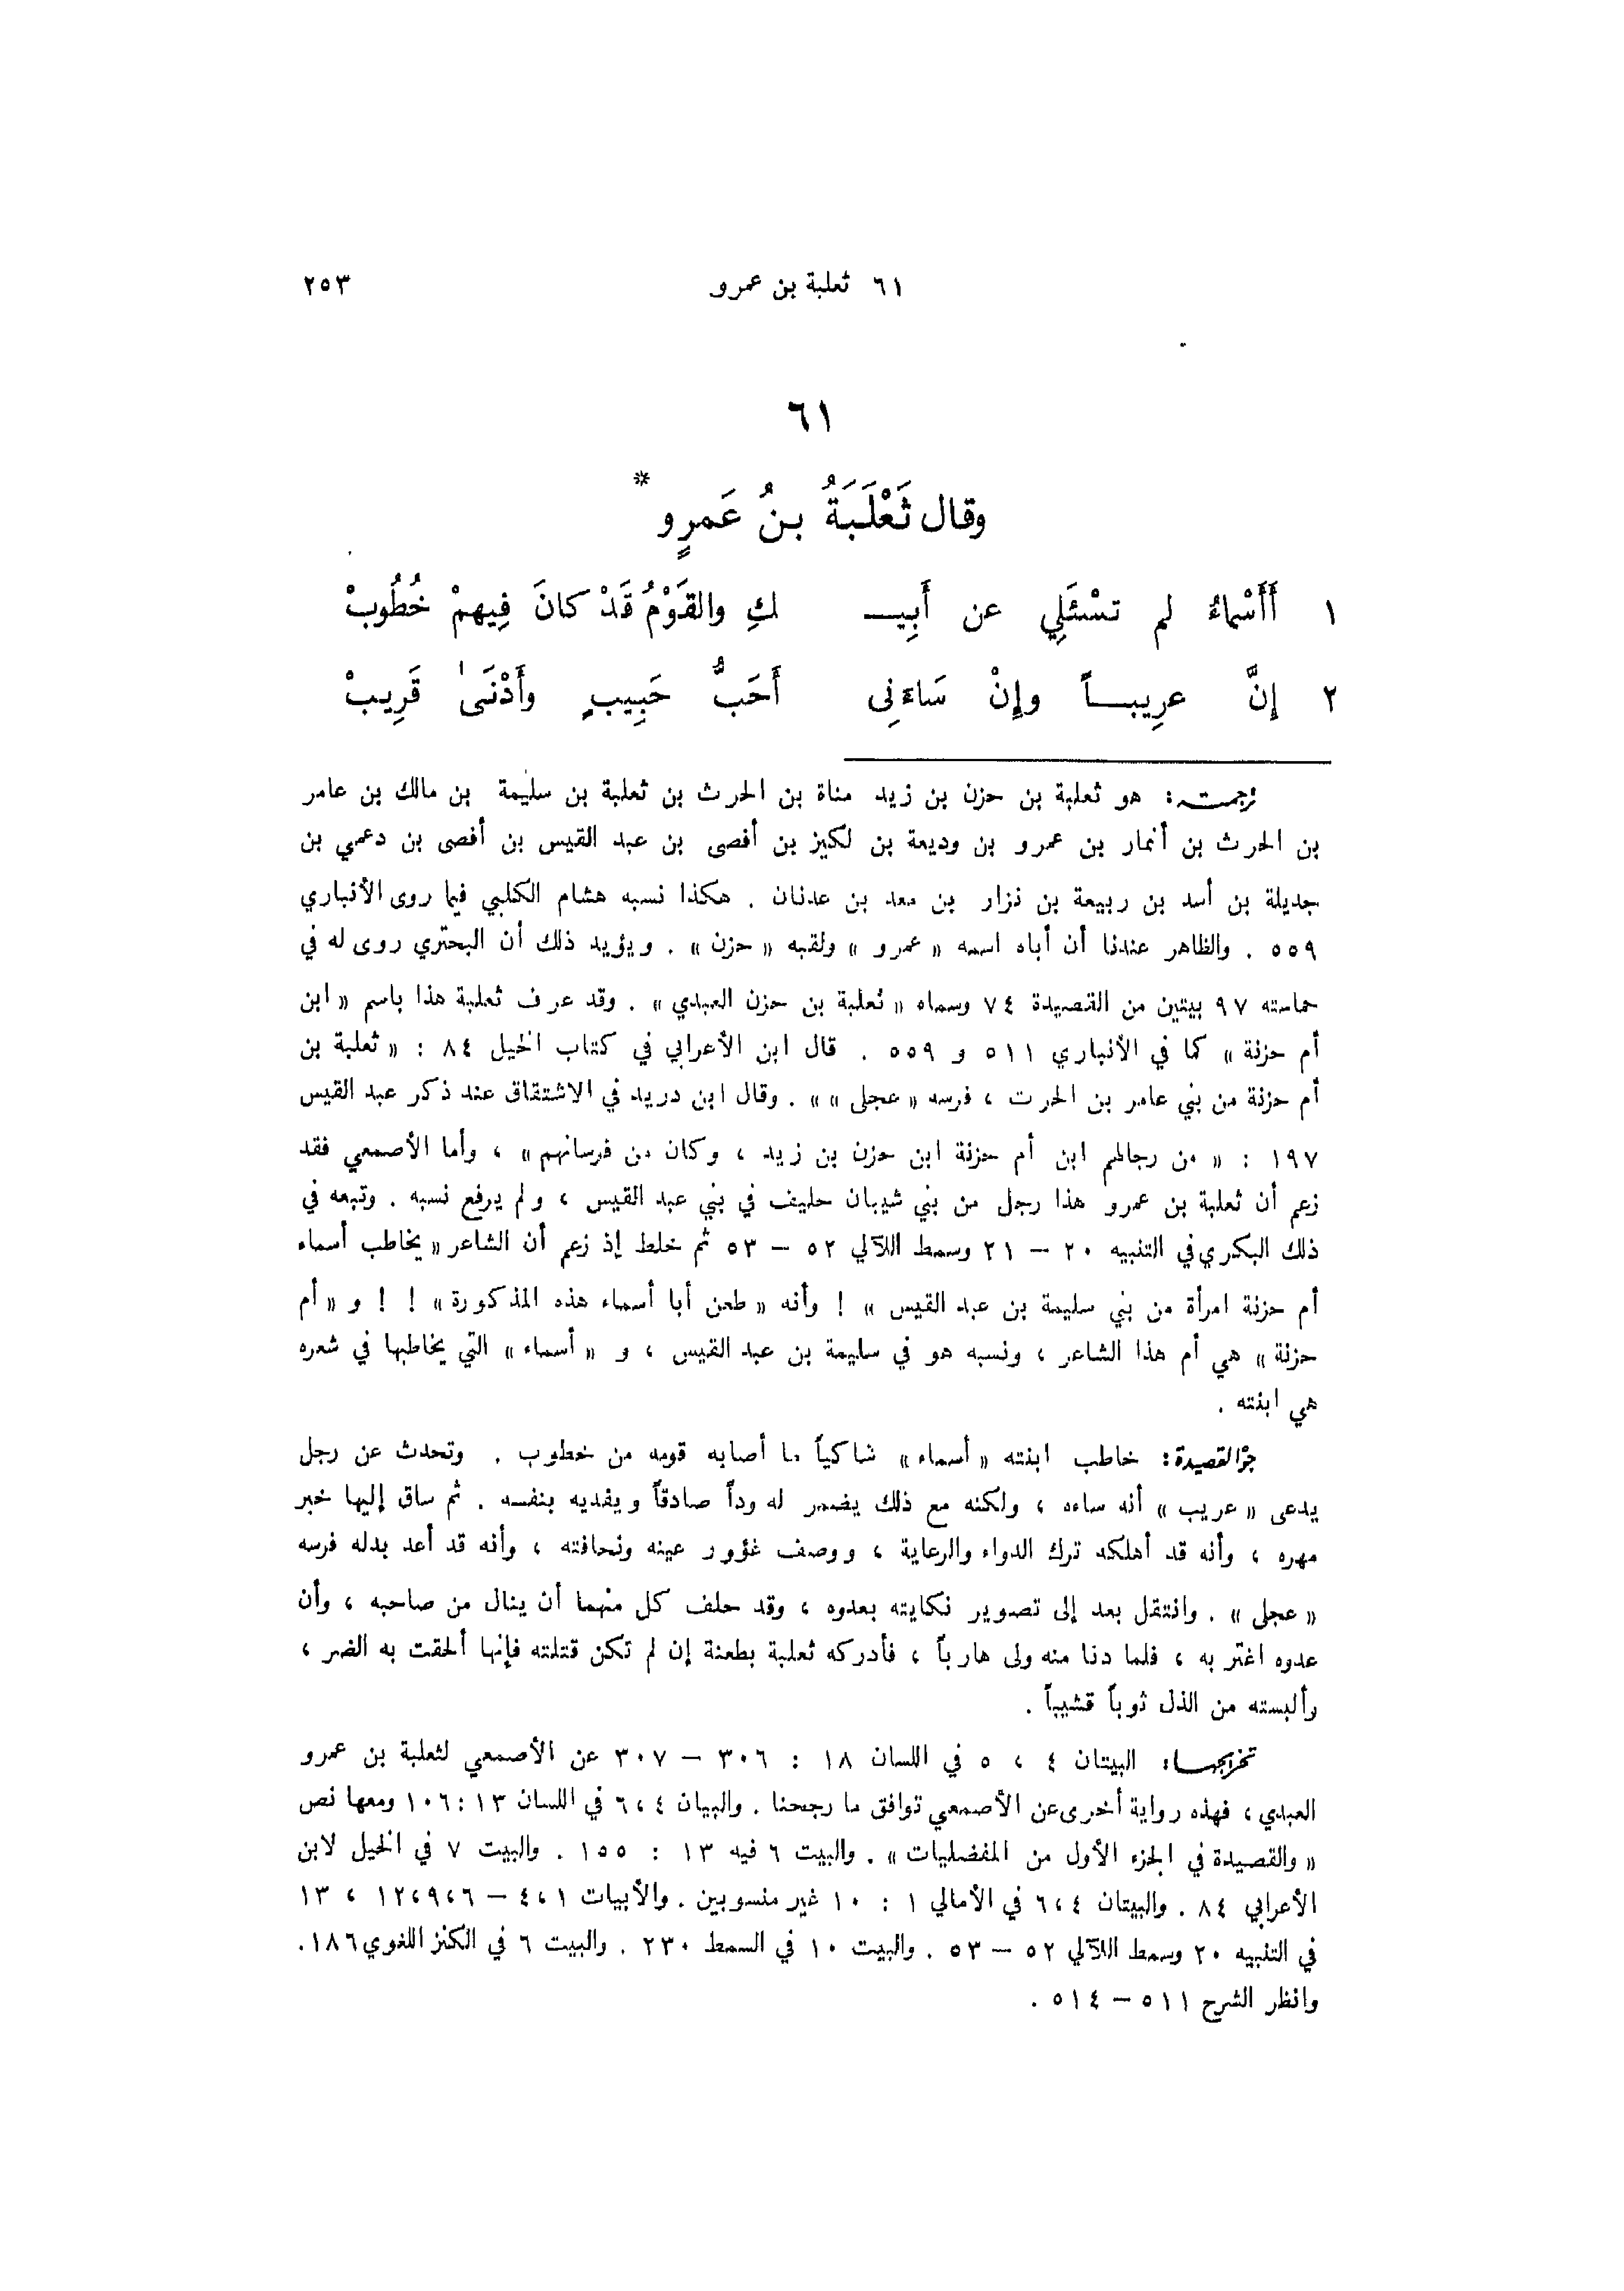 ٦١ ثعلبة بن عمرو ٢٥٣
٦١
وقال ثَعْلَبَةُ بنُ عَمرٍو *
١ أَأَسْماءُ لم تسْئَلِي عن أَبِيـ ـكِ والقَوْمُ قَدْ كانَ فِيهمْ خُطُوبْ
٢ إِنَّ عرِيبـاً وإِنْ سَاءَنِى أَحَبُّ حَبِيبٍ وأَدْنَىٰ قَرِيبْ
ترجمته: هو ثعلبة بن حزن بن زيد مناة بن الحرث بن ثعلبة بن سليمة بن مالك بن عامر
بن الحرث بن أنمار بن عمرو بن وديعة بن لكيز بن أفصى بن عبد القيس بن أفصى بن دعمي بن
جديلة بن أسد بن ربيعة بن نزار بن معد بن عدنان . هكذا نسبه هشام الكلبي فيما روى الأنباري
٥٥٩ . والظاهر عندنا أن أباه اسمه « عمرو » ولقبه « حزن » . ويؤيد ذلك أن البحتري روى له في
حماسته ٩٧ بيتين من القصيدة ٧٤ وسماه « ثعلبة بن حزن العبدي » . وقد عرف ثعلبة هذا باسم « ابن
أم حزنة » كما في الأنباري ٥١١ و ٥٥٩ . قال ابن الأعرابي في كتاب الخيل ٨٤ : « ثعلبة بن
أم حزنة من بني عامر بن الحرث ، فرسه « عجلى » » . وقال ابن دريد في الاشتقاق عند ذكر عبد القيس
١٩٧ : « من رجالهم ابن أم حزنة ابن حزن بن زيد ، وكان من فرسانهم » ، وأما الأصمعي فقد
زعم أن ثعلبة بن عمرو هذا رجل من بني شيبان حليف في بني عبد القيس ، ولم يرفع نسبه . وتبعه في
ذلك البكري في التنبيه ٢٠ – ٢١ وسمط اللآلي ٥٢ – ٥٣ ثم خلط إذ زعم أن الشاعر « يخاطب أسماء
أم حزنة امرأة من بني سليمة بن عبد القيس » ! وأنه « طعن أبا أسماء هذه المذكورة » ! ! و « أم
حزنة » هي أم هذا الشاعر ، ونسبه هو في سليمة بن عبد القيس ، و « أسماء » التي يخاطبها في شعره
هي ابنته .
جوّ القصيدة: خاطب ابنته « أسماء » شاكياً ما أصابه قومه من خطوب . وتحدث عن رجل
يدعى « عريب » أنه ساءه ، ولكنه مع ذلك يضمر له وداً صادقاً ويفديه بنفسه . ثم ساق إليها خبر
مهره ، وأنه قد أهلكه ترك الدواء والرعاية ، ووصف غؤور عينه ونحافته ، وأنه قد أعد بدله فرسه
« عجلى » . وانتقل بعد إلى تصوير نكايته بعدوه ، وقد حلف كل منهما أن ينال من صاحبه ، وأن
عدوه اغتر به ، فلما دنا منه ولى هارباً ، فأدركه ثعلبة بطعنة إن لم تكن قتلته فإنها ألحقت به الضر ،
وألبسته من الذل ثوباً قشيباً .
تخريجها: البيتان ٤ ، ٥ في اللسان ١٨ : ٣٠٦ – ٣٠٧ عن الأصمعي لثعلبة بن عمرو
العبدي ، فهذه رواية أخرى عن الأصمعي توافق ما رجحنا . والبيان ٤ ، ٦ في اللسان ١٣ : ١٠٦ ومعها نص
« والقصيدة في الجزء الأول من المفضليات » . والبيت ٦ فيه ١٣ : ١٥٥ . والبيت ٧ في الخيل لابن
الأعرابي ٨٤ . والبيتان ٤ ، ٦ في الأمالي ١ : ١٠ غير منسوبين . والأبيات ١ ، ٤ – ٦ ، ٩ ، ١٢ ، ١٣
في التنبيه ٢٠ وسمط اللآلي ٥٢ – ٥٣ . والبيت ١٠ في السمط ٢٣٠ . والبيت ٦ في الكنز اللغوي ١٨٦ .
وانظر الشرح ٥١١ – ٥١٤ .